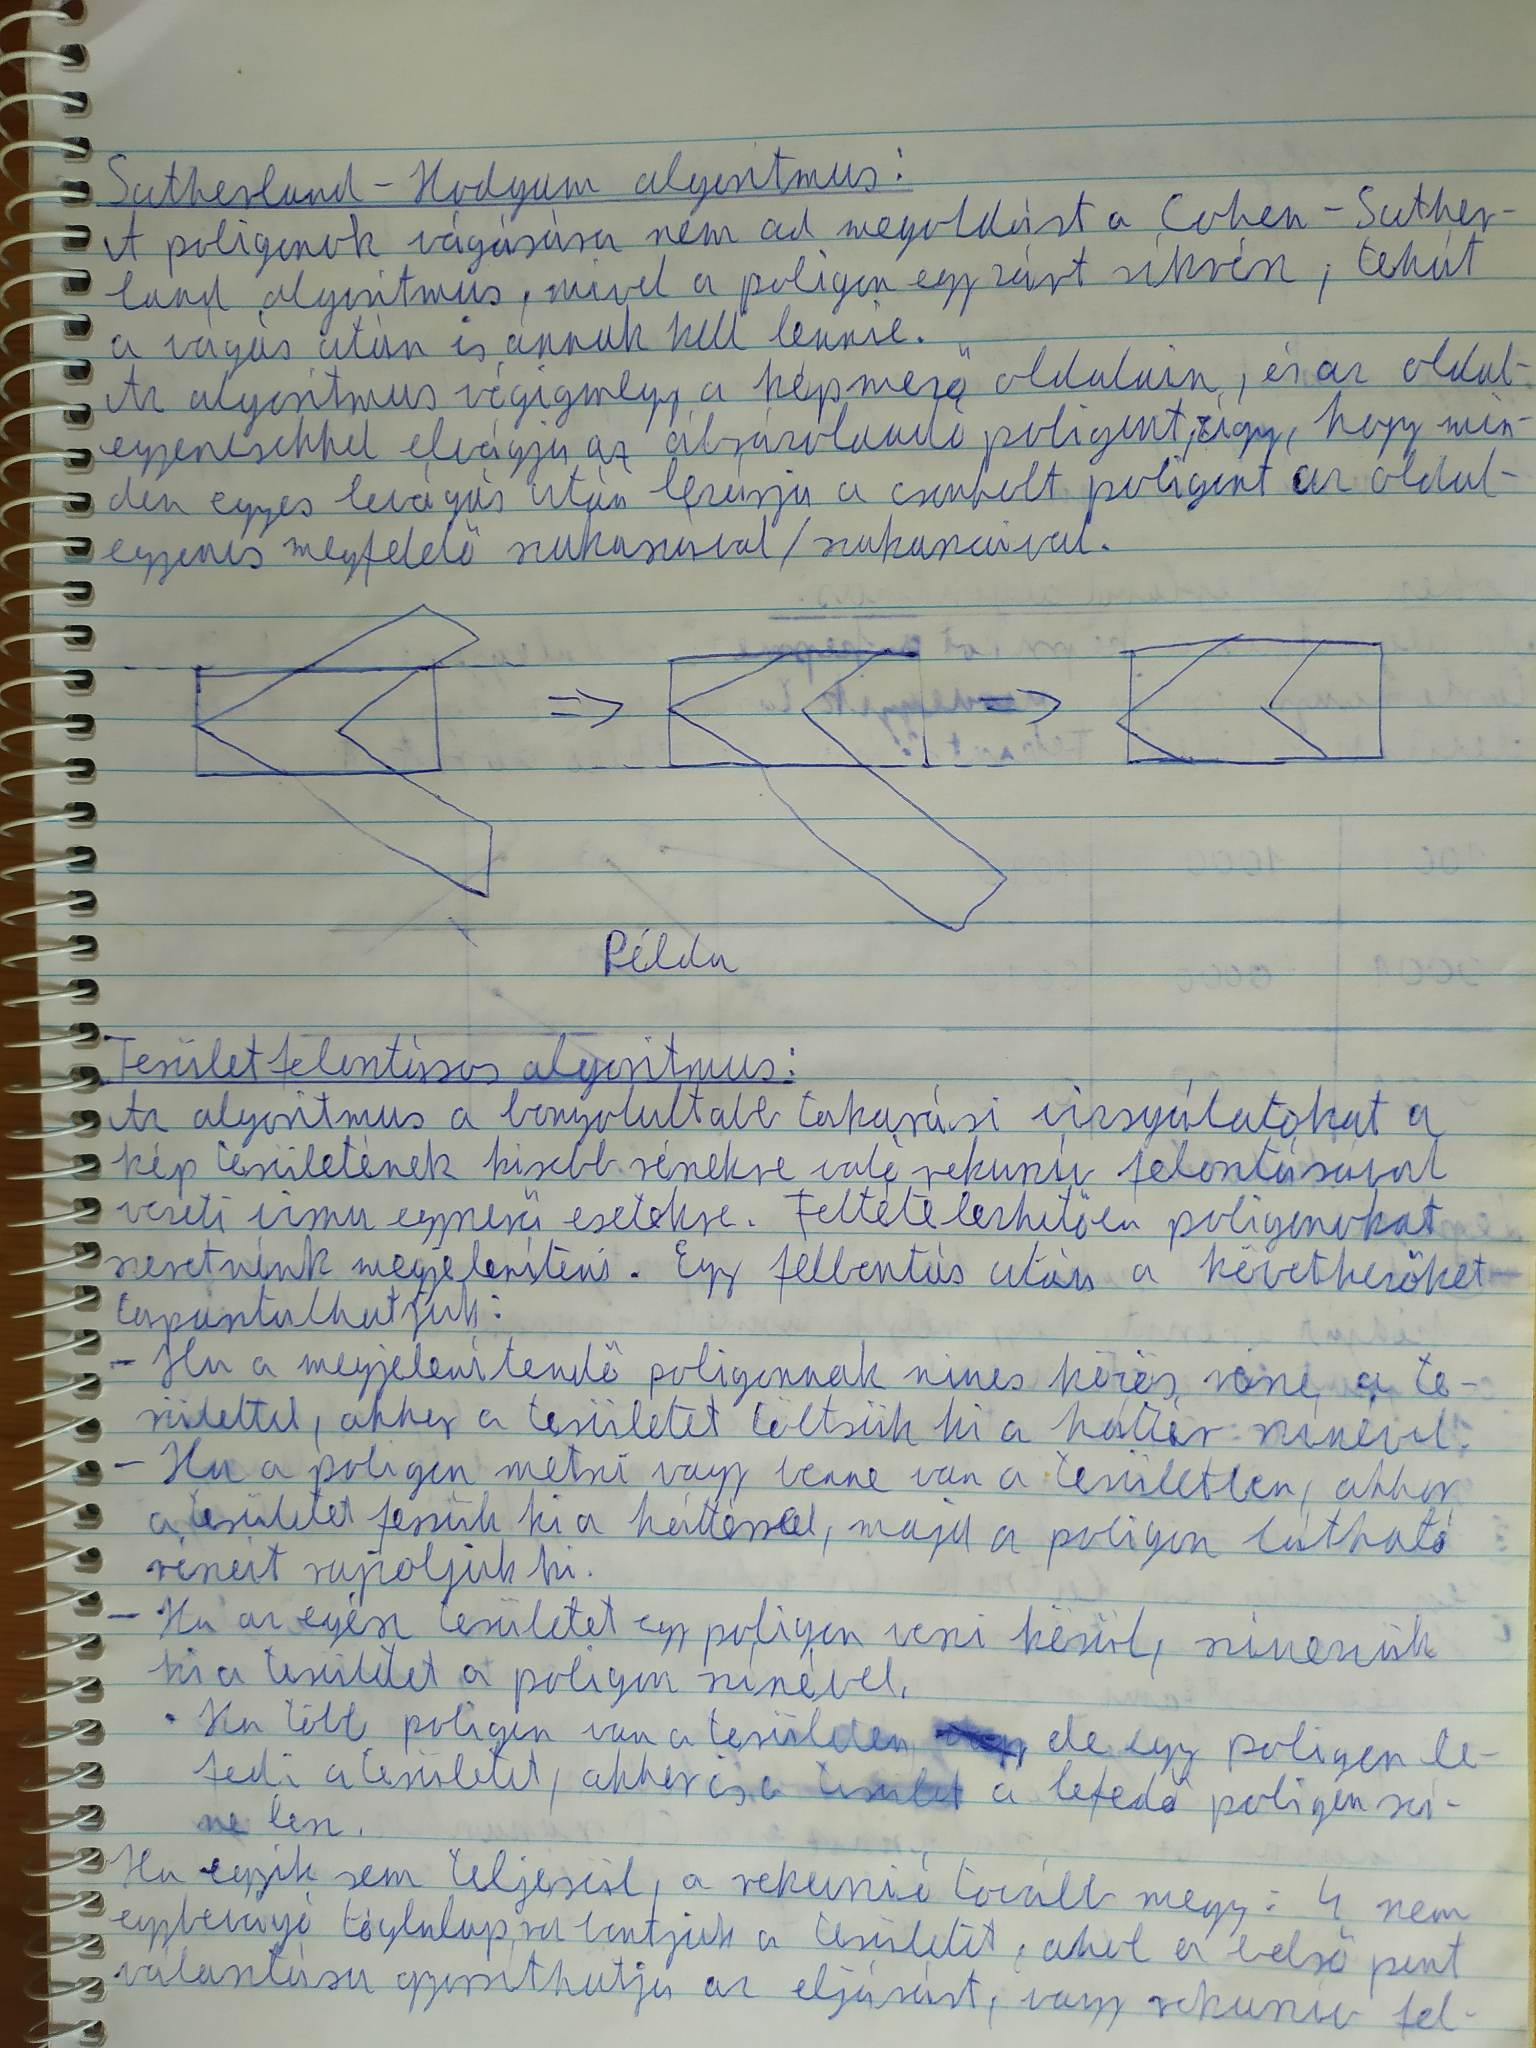 Sutherland - Hodgam algoritmus:
A poligonok vágására nem ad megoldást a Cohen - Suther-
land algoritmus, mivel a poligon egy zárt síkrész, tehát
a vágás után is annak kell lennie.
Az algoritmus végigmegy a képmező oldalain, és az oldal-
egyenesekkel elvágja az ábrázolandó poligont, úgy, hogy min-
den egyes levágás után lezárja a csonkolt poligont az oldal-
egyenes megfelelő szakaszával/szakaszaival.
Példa
Területfelosztásos algoritmus:
Az algoritmus a bonyolultabb takarási vizsgálatokat a
kép területének kisebb részekre való rekurzív felosztásával
vezeti vissza egyszerű esetekre. Feltételezhetően poligonokat
szeretnénk megjeleníteni. Egy felbontás után a következőket
tapasztalhatjuk:
- Ha a megjelenítendő poligonnak nincs közös része a te-
rülettel, akkor a területet töltsük ki a háttér színével.
- Ha a poligon metszi vagy benne van a területben, akkor
a területet fessük ki a háttérrel, majd a poligon látható
részeit rajzoljuk ki.
- Ha az egész területet egy poligon veszi körül, színezzük
ki a területet a poligon színével.
• Ha több poligon van a területen de egy poligon le-
fedi a területet, akkor is a terület a lefedő poligon szí-
ne lesz.
Ha egyik sem teljesül, a rekurzió tovább megy: 4 nem
egybevágó téglalapra bontjuk a területet, ahol a belső pont
választása gyorsíthatja az eljárást, vagy rekurzív fel-